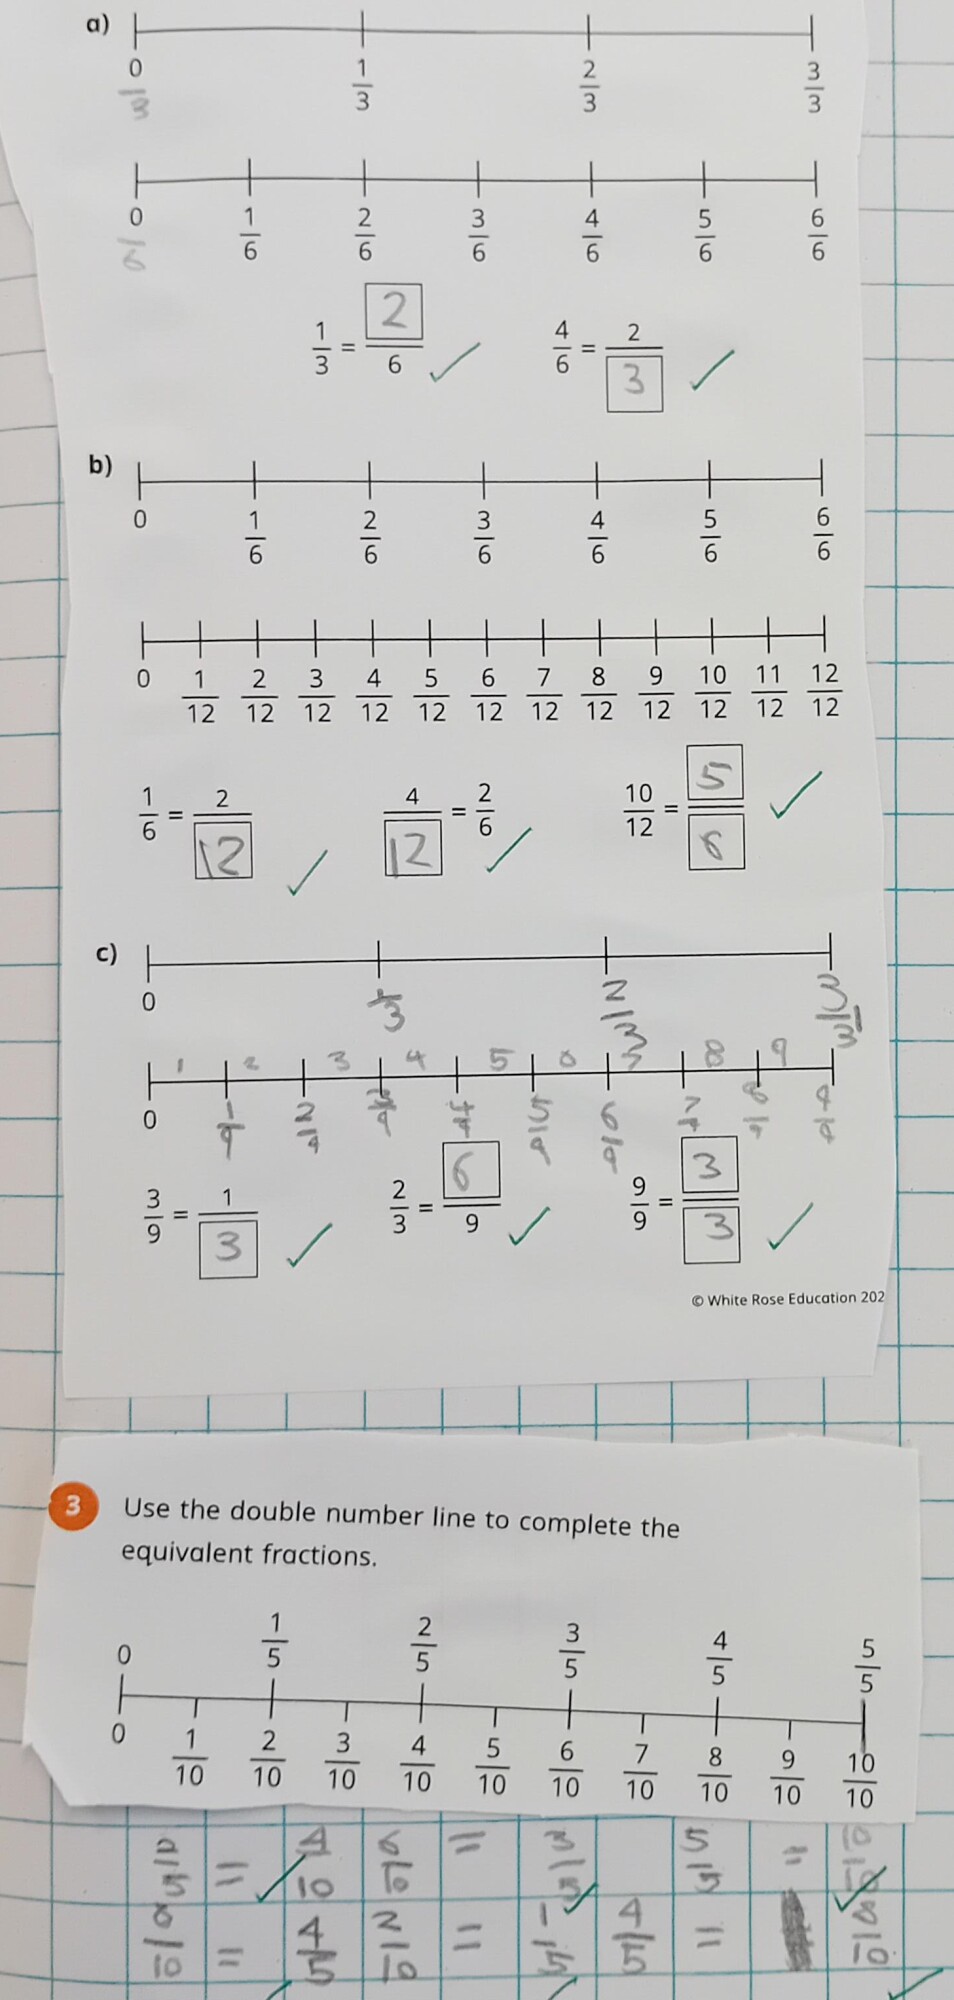 a)
0/3 1/3 2/3 3/3
0/6 1/6 2/6 3/6 4/6 5/6 6/6
1/3 = 2/6 4/6 = 2/3
b)
0 1/6 2/6 3/6 4/6 5/6 6/6
0 1/12 2/12 3/12 4/12 5/12 6/12 7/12 8/12 9/12 10/12 11/12 12/12
1/6 = 2/12 4/12 = 2/6 10/12 = 5/6
c)
0 1/3 2/3 3/3
1 2 3 4 5 6 7 8 9
0 1/9 2/9 3/9 4/9 5/9 6/9 7/9 8/9 9/9
3/9 = 1/3 2/3 = 6/9 9/9 = 3/3
© White Rose Education 202
3 Use the double number line to complete the
equivalent fractions.
0 1/5 2/5 3/5 4/5 5/5
0 1/10 2/10 3/10 4/10 5/10 6/10 7/10 8/10 9/10 10/10
2/5 = 4/10 6/10 = 3/5 5/5 = 10/10
8/10 = 4/5 2/10 = 1/5 4/5 = 8/10